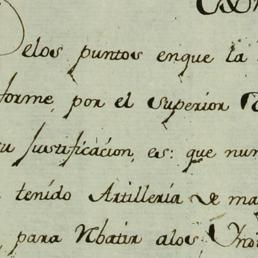 Delos puntos enque la
forme, por el Superior
su Justificacion, es: que nun
tenido Artillería de ma
para Vbatir alos Yndi